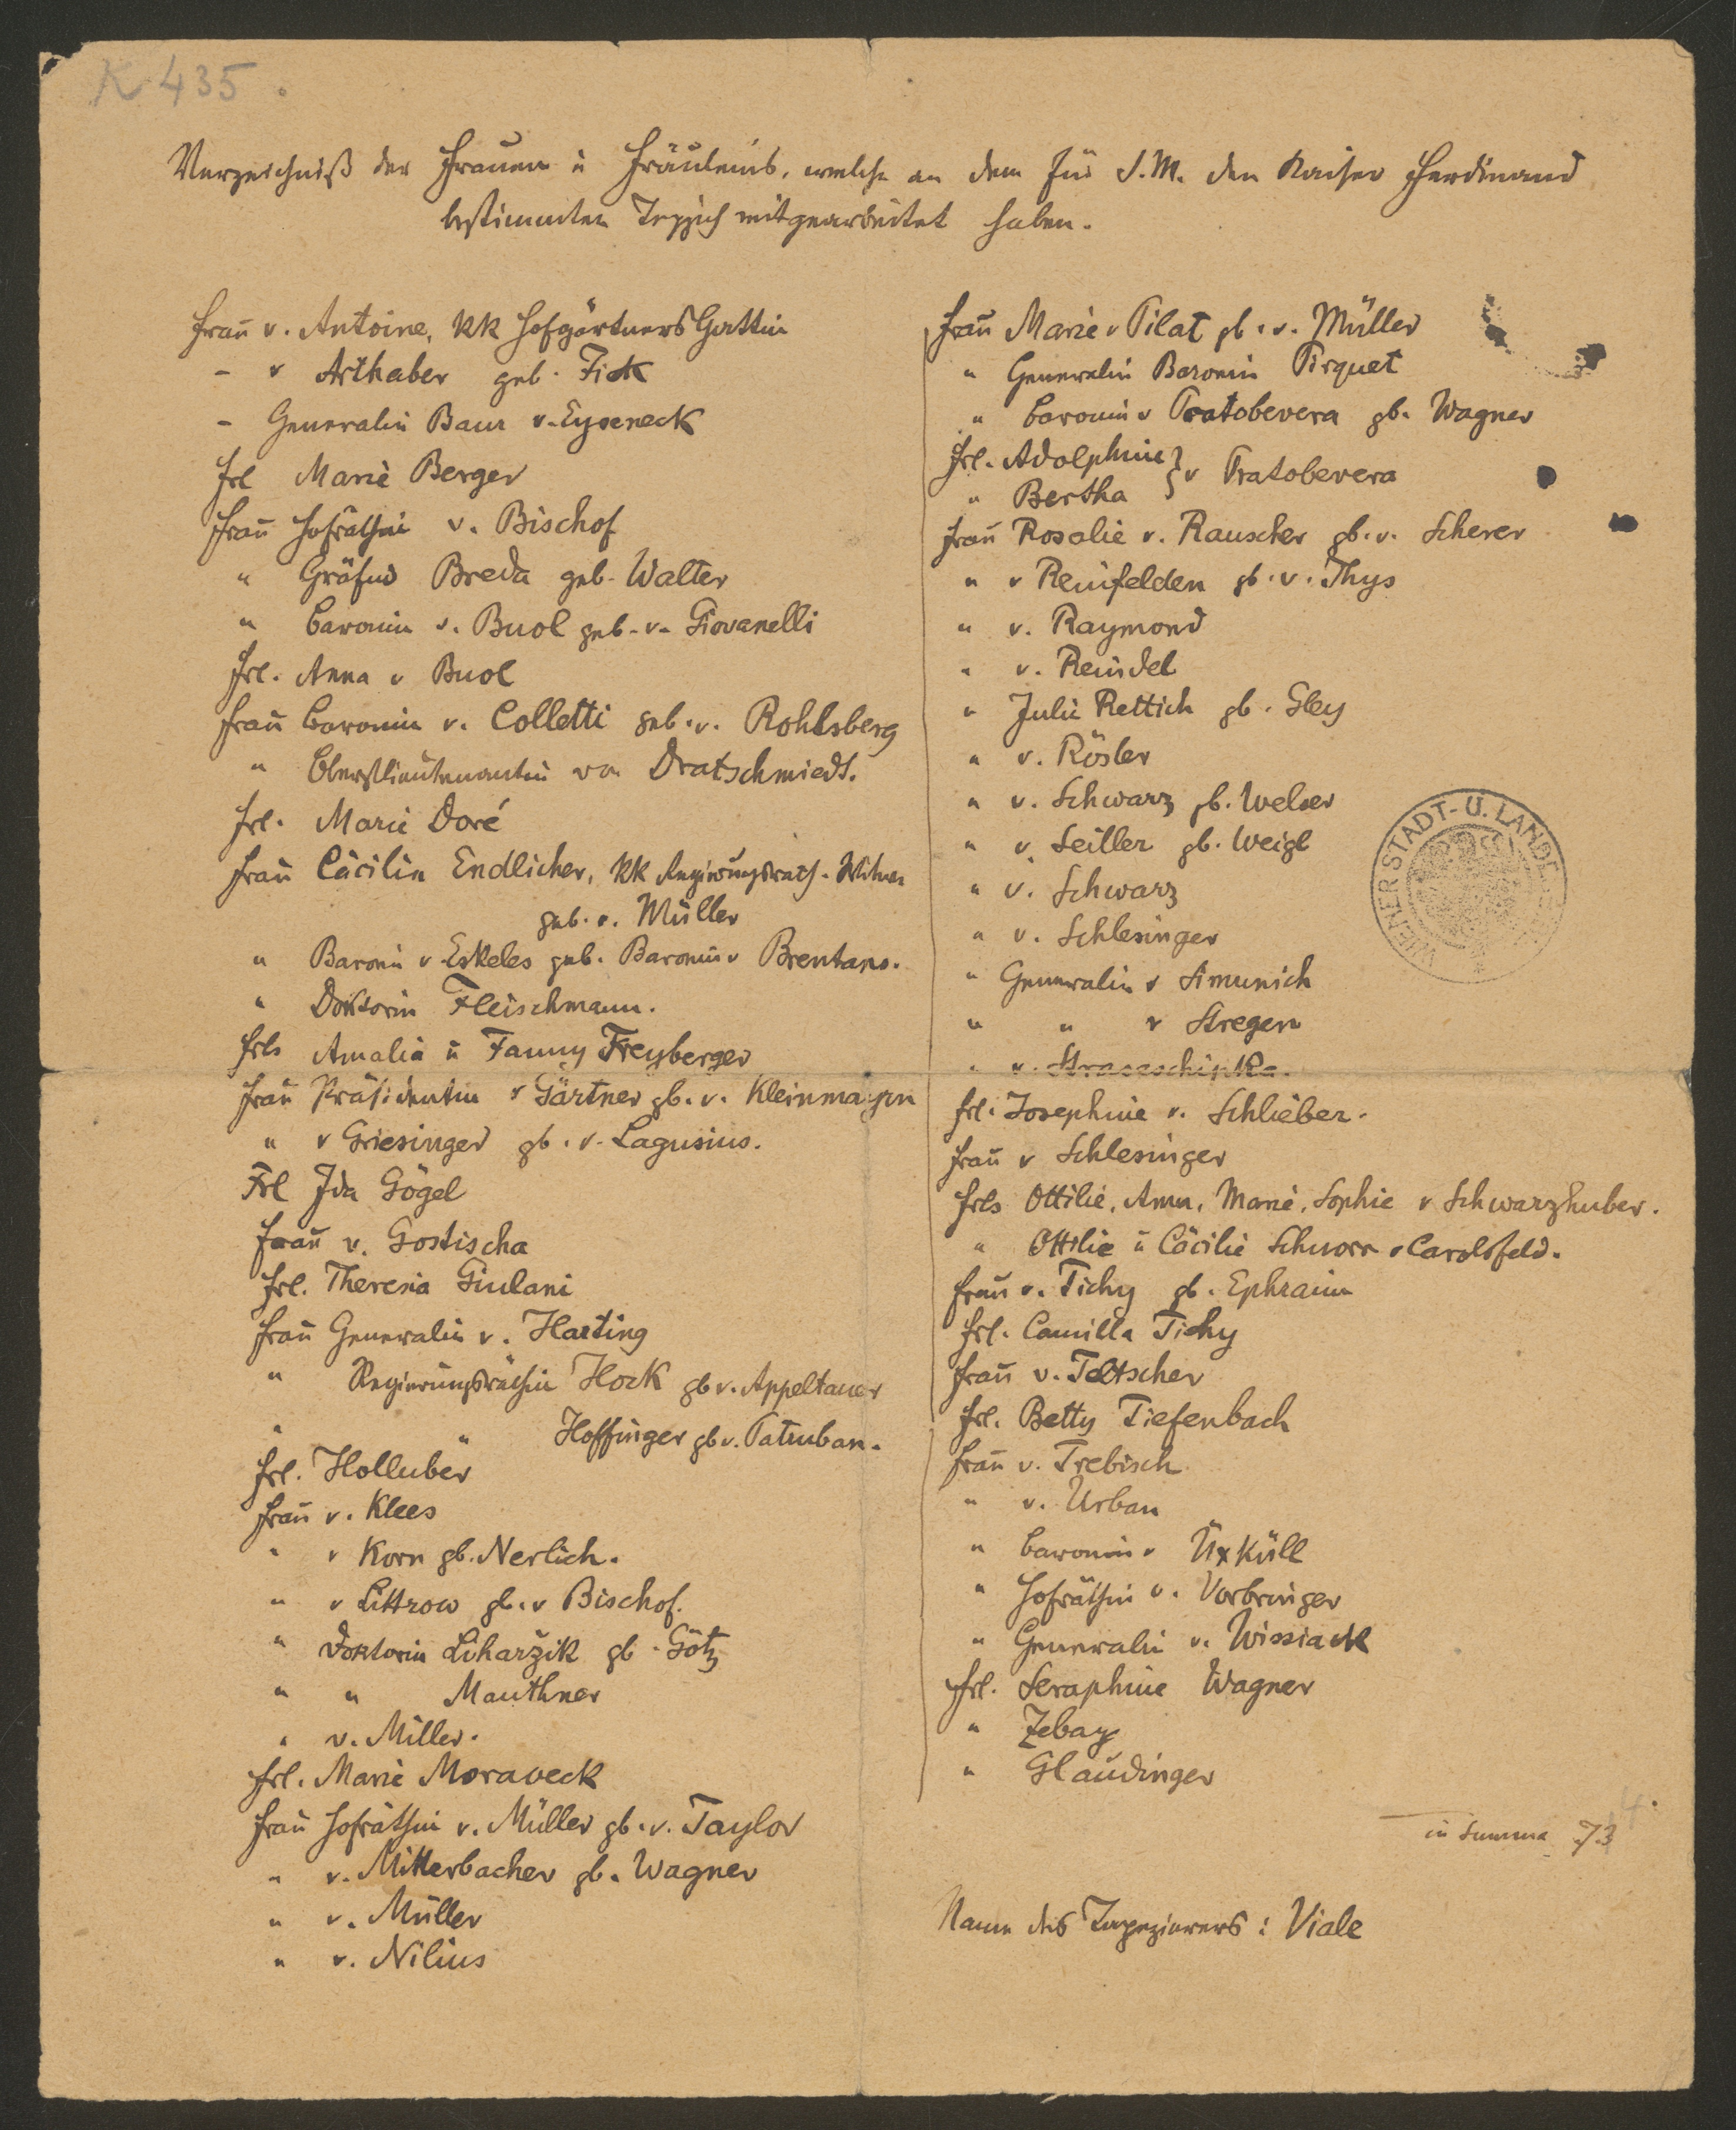 K 435.
Verzeichniß der Frauen u Fräuleins, welche an dem für S. M. den Kaiser Ferdinand
bestimmten Teppich mitgearbeitet haben.
Frau v. Antoine, KK Hofgärtners Gattin
- v Arthaber geb. Fick
- Generalin Baur v. Eyseneck
Frl Marie Berger
Frau Hofräthin v. Bischof
" Gräfin Breda geb. Walter
" Baronin v. Buol geb. v. Giovanelli
Frl. Anna v Buol
Frau Baronin v. Colletti geb. v. Rohlsberg
" Oberstlieutenantin von Dratschmiedt.
Frl. Marie Doré
Frau Cäcilia Endlicher, KK Regierungsrath-Witwe
geb. v. Müller
" Baronin v Eskeles geb. Baronin v Brentano.
" Doktorin Fleischmann.
Frls Amalia u Fanny Freyberger
Frau Präsidentin v Gärtner gb. v. Kleinmayrn
" v Griesinger gb. v. Lagusius.
Frl Ida Gögel
Frau v. Gostischa
Frl. Theresia Giulani
Frau Generalin v. Harting
" Regierungsräthin Hock gb v. Appeltauer
" " Hoffinger gb v.
Frl. Holluber
Frau v. Klees
" v Korn gb. Nerlich.
" v Littrow gb. v Bischof.
" Doktorin Liharžik gb. Götz
" " Mauthner
" v. Miller.
Frl. Marie Moraveck
Frau Hofräthin v. Müller gb. v. Taylor
" v. Mitterbacher gb. Wagner
" v. Müller
" v. Nilius
Frau Marie v Pilat gb. v. Müller
" Generalin Baronin Pirquet
" Baronin v Pratobevera gb. Wagner
Frl. Adolphine } v Pratobevera
" Bertha
Frau Rosalie v. Rauscher gb. v. Scherer
" v Reinfelden gb. v. Thys
" v. Raymond
" v. Reindel
" Julie Rettich gb. Gley
" v. Rösler
" v. Schwarz gb. Welser
" v. Seiller gb. Weigl
" v. Schwarz
" v. Schlesinger
" Generalin v Simunich
" " v Stregen
" v. Straseschipka.
Frl. Josephine v. Schlieber.
Frau v Schlesinger
Frls Ottilie, Anna, Marie, Sophie v Schwarzhuber.
" Ottilie u Cäcilie Schnorr v Carolsfeld.
Frau v. Tichy gb. Ephraim
Frl. Camilla Tichy
Frau v. Teltscher
Frl. Betty Tiefenbach
Frau v. Trebisch
" v. Urban
" Baronin v Üxküll
" Hofräthin v. Vorbringer
" Generalin v. Wissiack
Frl. Seraphine Wagner
" Zebay
" Glaudinger
in Summa 73
4.
Name des Tapezierers: Viale
WIENER STADT- U. LANDE